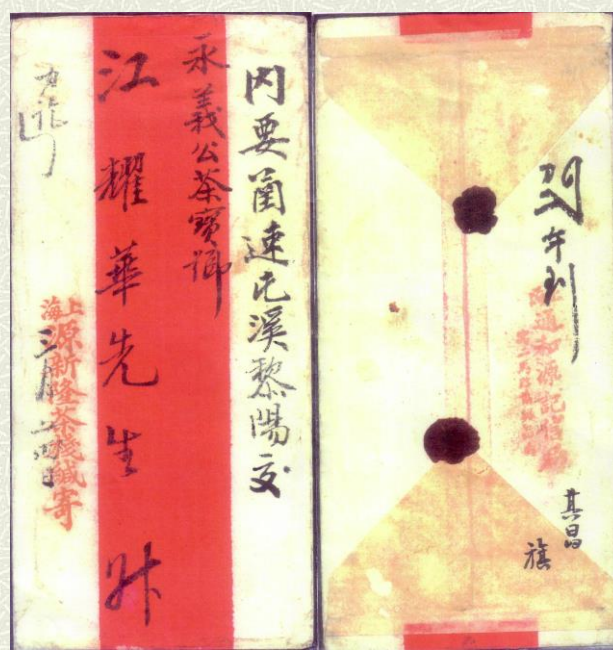 內要函速屯溪黎陽交
永義公茶寶號
江耀華先生升
上海
原新隆茶棧緘寄
三月
日
午到
通和源記信局
其昌
旗